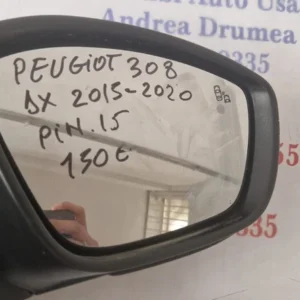 si Auto Usa
Andrea Drumea
0335
PEUGIOT 308
DX 2015-2020
PIN.15
150€
55
335